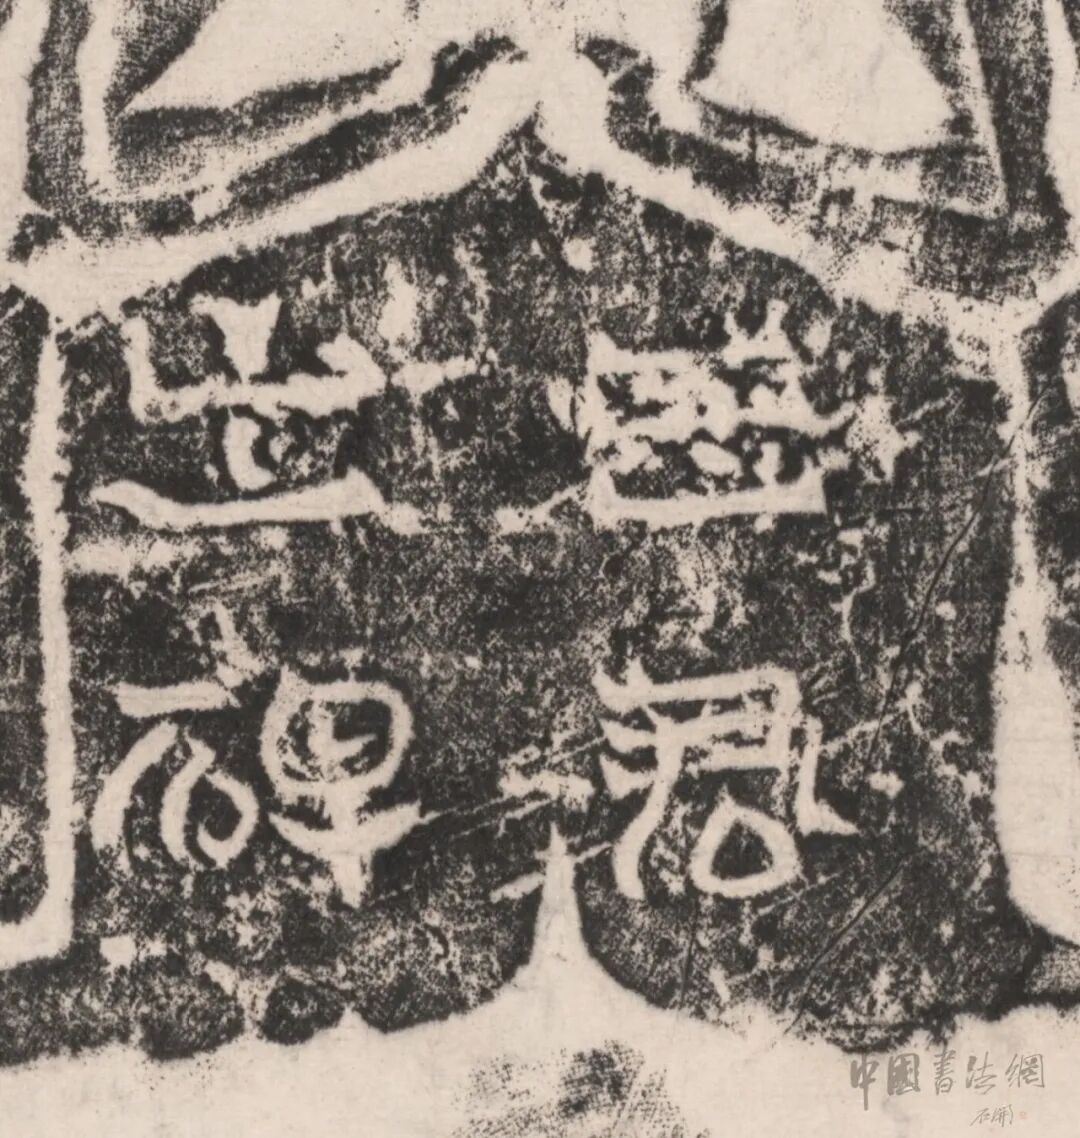 君
之碑
中國書法網
石開